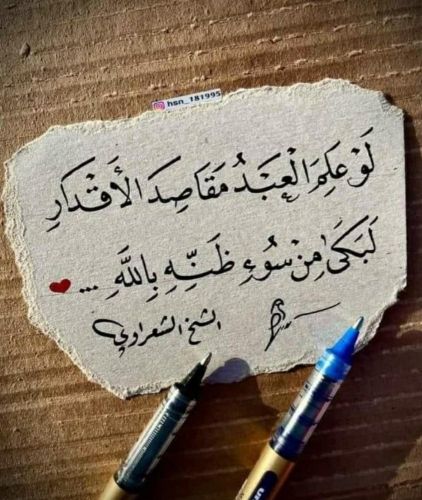 hsn_181995
لَوْ عَلِمَ الْعَبْدُ مَقَاصِدَ الأَقْدَارِ
لَبَكَىٰ مِنْ سُوءِ ظَنِّهِ بِاللَّهِ ...
الشيخ الشعراوي